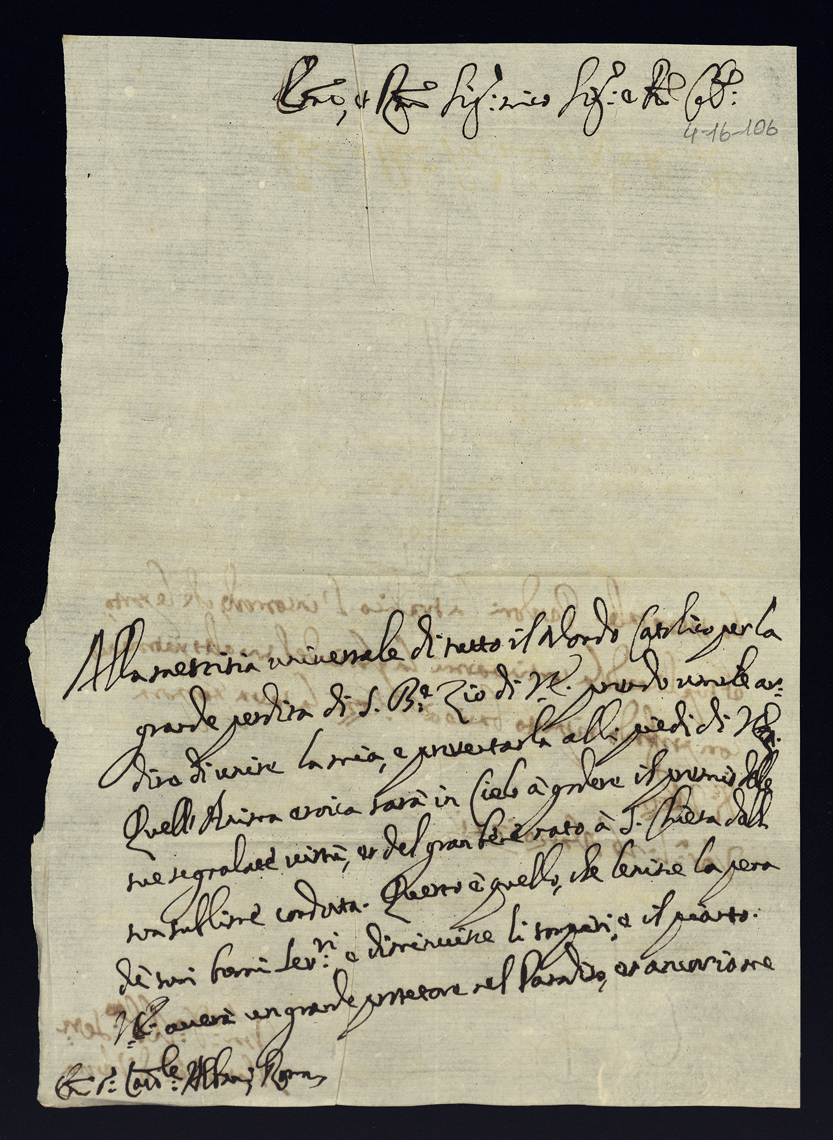 Em̃o, et Rm̃o Sig.r mio Sig.r e Pñe Col.mo
4-16-106
Alla mestitia universale di tutto il Mondo Catolico per la
grande perdita di S. B.e Zio di V.E. prendo umile ar=
dire di unire la mia, e presentarla alli piedi di V.E.
Quell'Anima eroica sarà in Cielo à godere il premio delle
sue segnalate virtù, et del gran bene nato à S. Chiesa dalla
sua sublime condotta. Questo è quello, che lenisce la pena
de suoi buoni Ser.ri e diminuisce li sospiri, e il pianto.
V.E. averà un grande protettore nel Paradiso, et ancor io ne
Em̃o S.r Card.le Albani Roma